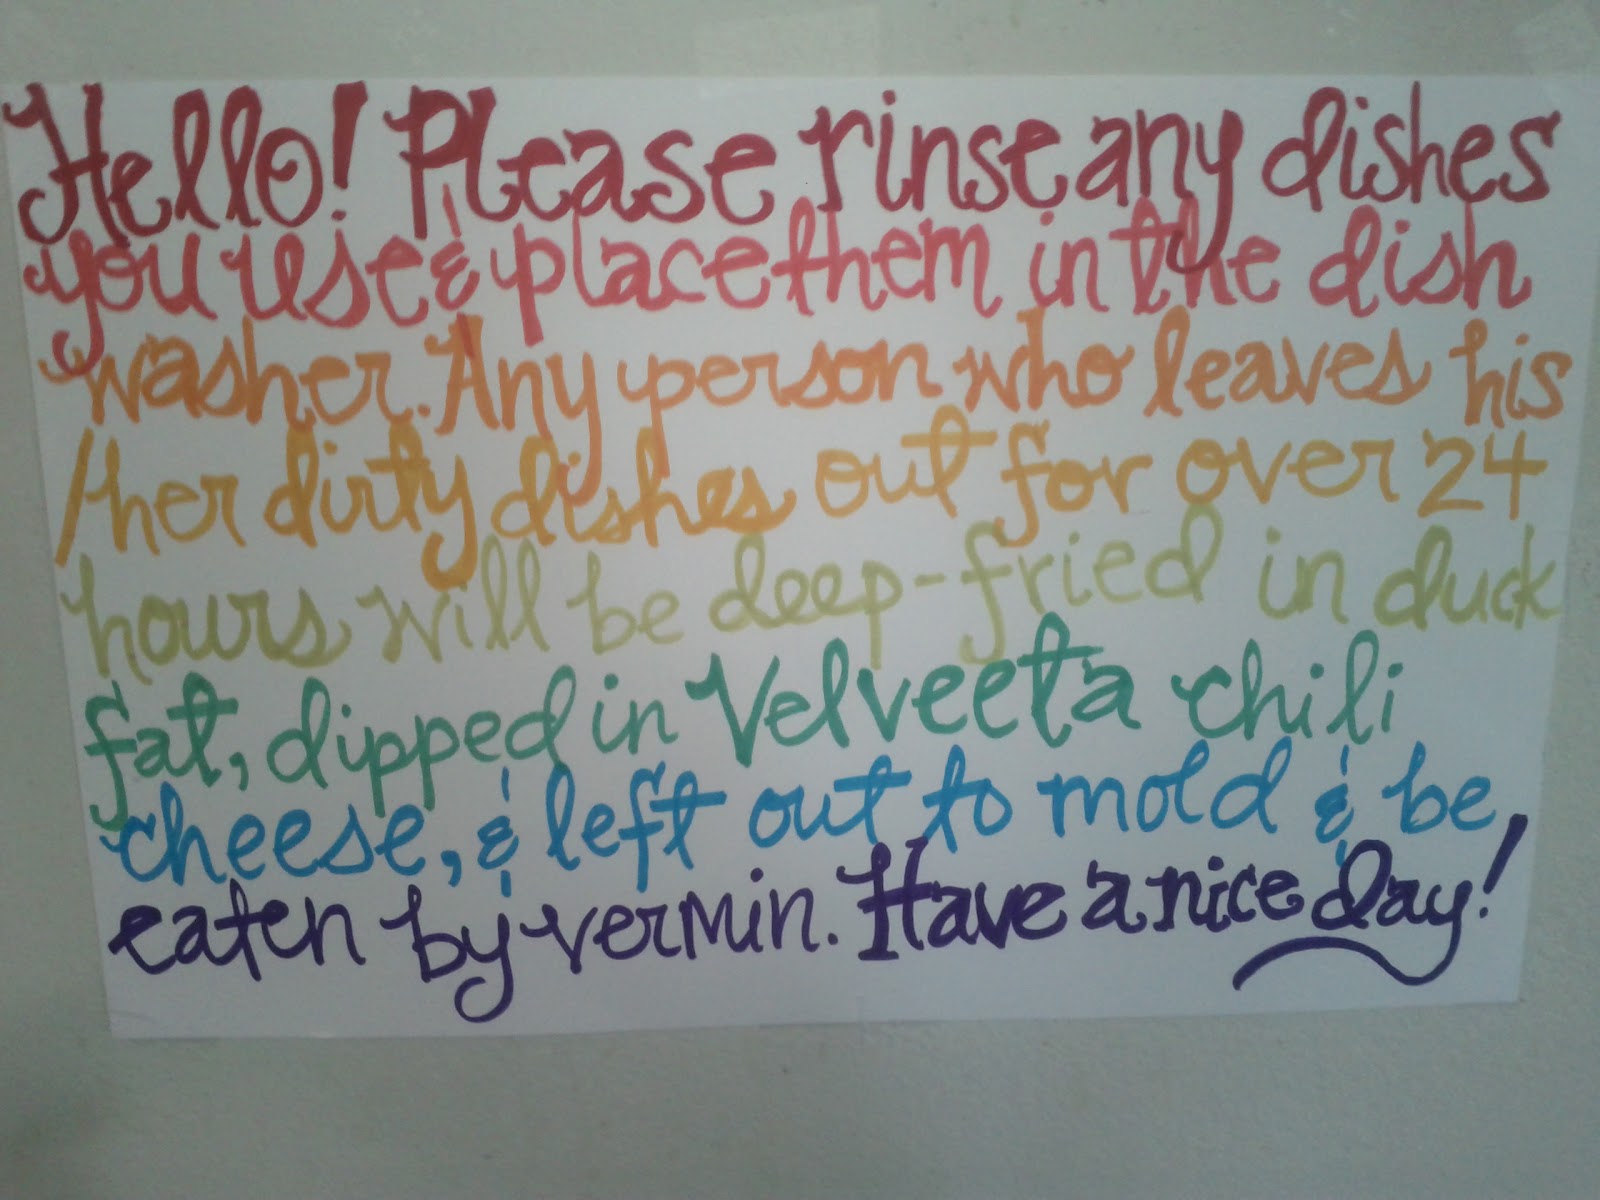 Hello! Please rinse any dishes
you use & place them in the dish
washer. Any person who leaves his
/her dirty dishes out for over 24
hours will be deep-fried in duck
fat, dipped in Velveeta chili
cheese, & left out to mold & be
eaten by vermin. Have a nice day!